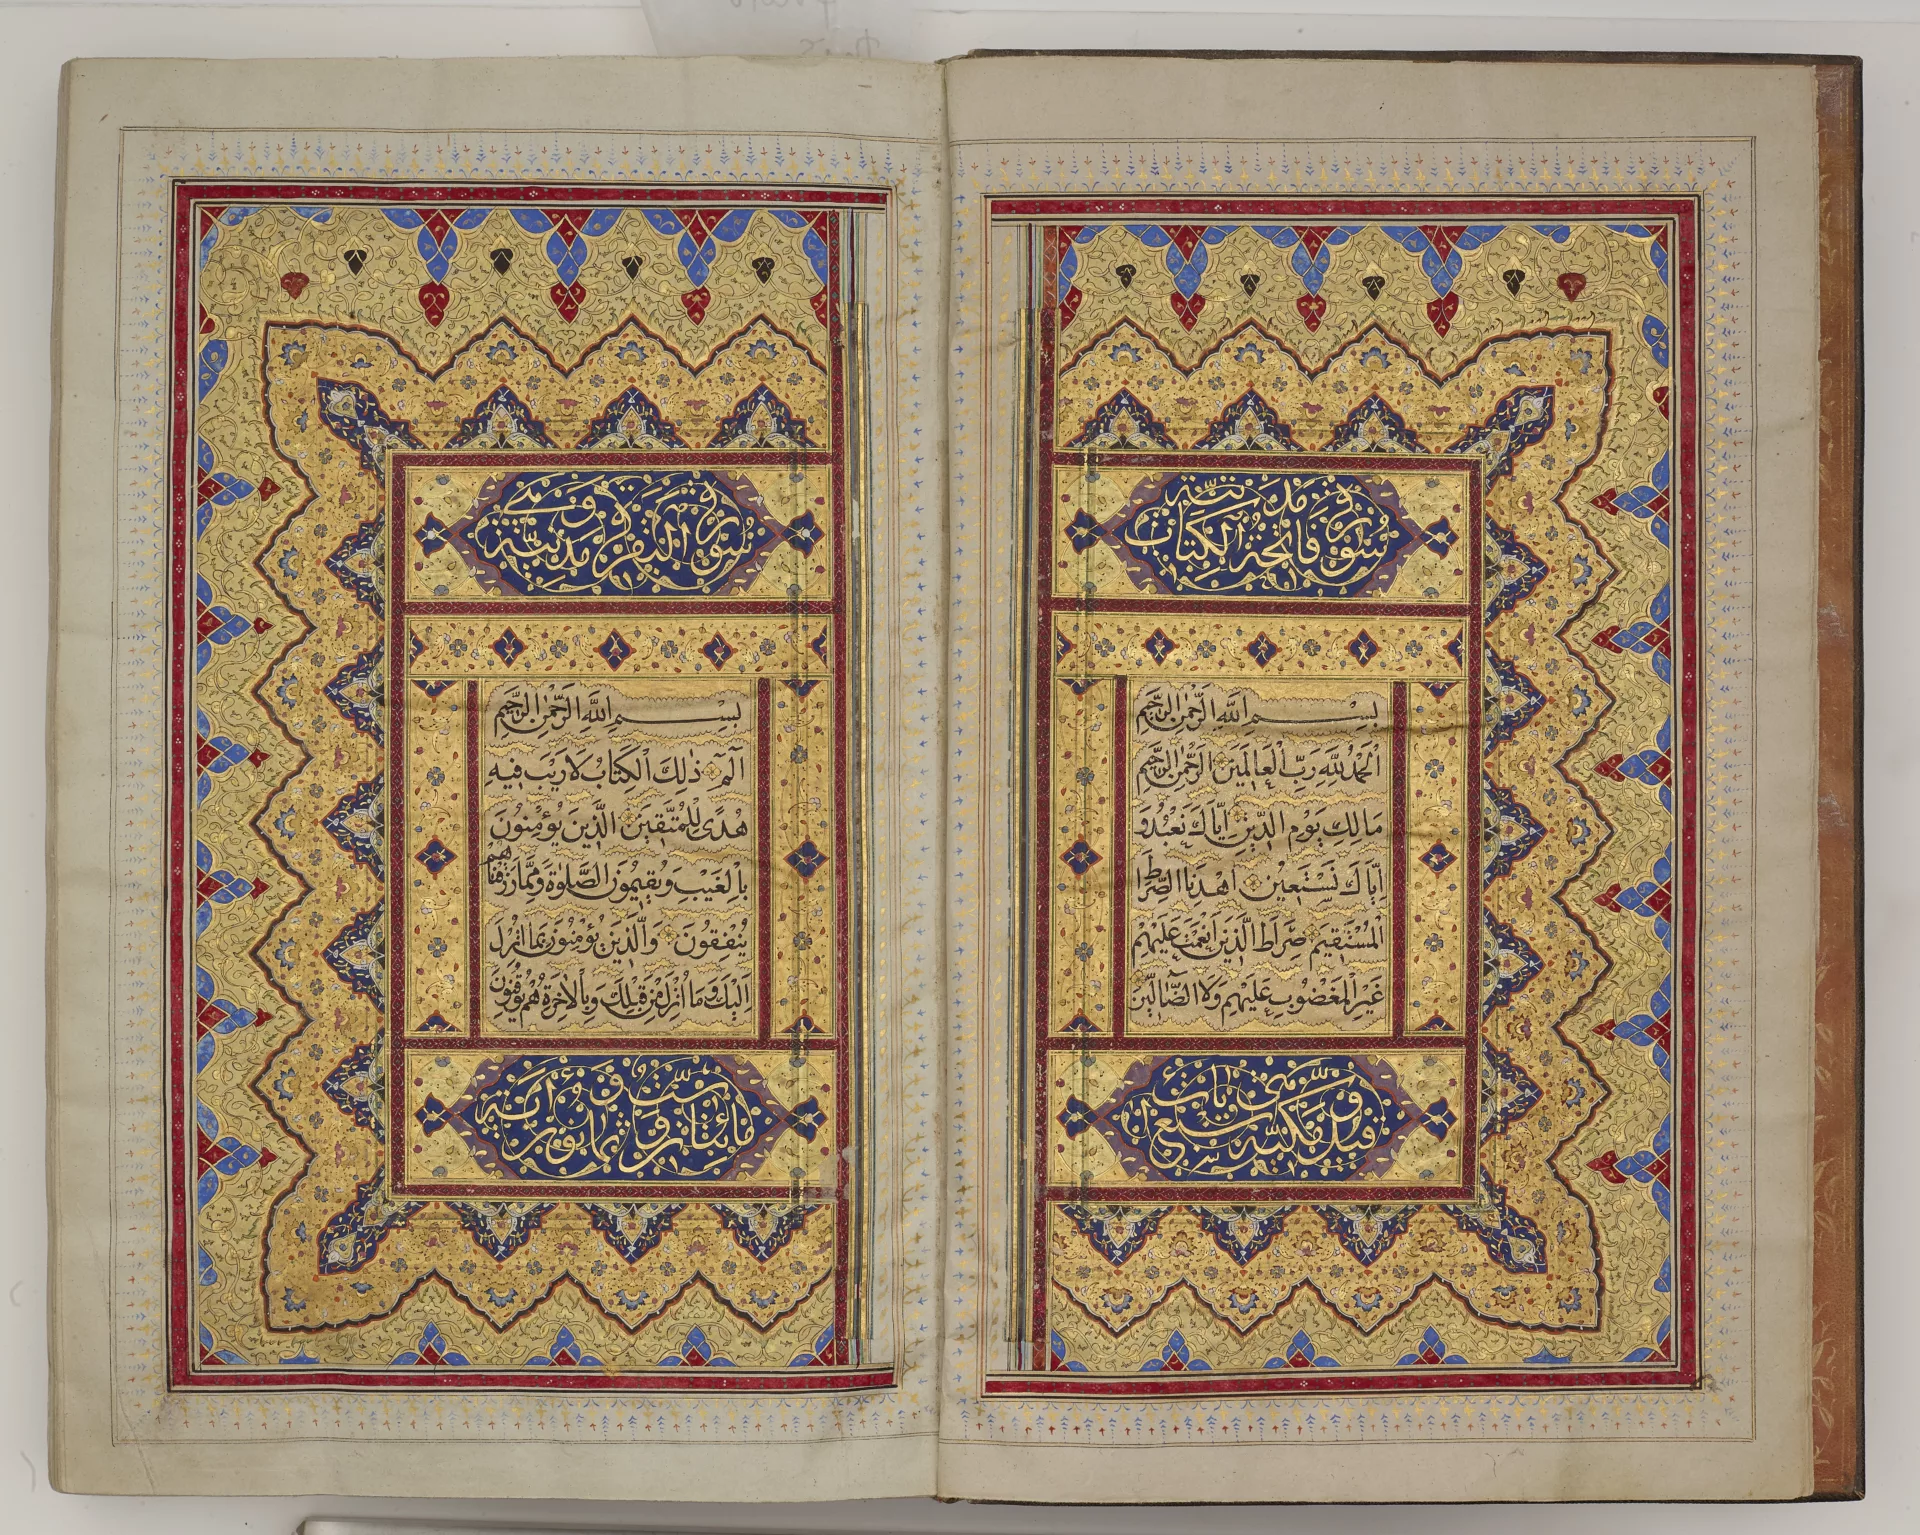 سُورَةُ فَاتِحَةِ الْكِتَابِ مَدَنِيَّة
بِسْمِ اللَّهِ الرَّحْمٰنِ الرَّحِيمِ
اَلْحَمْدُ لِلَّهِ رَبِّ الْعَالَمِينَ الرَّحْمٰنِ الرَّحِيمِ
مَالِكِ يَوْمِ الدِّينِ اِيَّاكَ نَعْبُدُ وَ
اِيَّاكَ نَسْتَعِينُ اِهْدِنَا الصِّرَاطَ
الْمُسْتَقِيمَ صِرَاطَ الَّذِينَ اَنْعَمْتَ عَلَيْهِمْ
غَيْرِ الْمَغْضُوبِ عَلَيْهِمْ وَلَا الضَّالِّينَ
وَقِيلَ مَكِّيَّة سَبْع
سُورَةُ الْبَقَرَةِ مَدَنِيَّة وَهِيَ
بِسْمِ اللَّهِ الرَّحْمٰنِ الرَّحِيمِ
الٓمٓ ذٰلِكَ الْكِتَابُ لَا رَيْبَ فِيهِ
هُدًى لِلْمُتَّقِينَ الَّذِينَ يُؤْمِنُونَ
بِالْغَيْبِ وَيُقِيمُونَ الصَّلٰوةَ وَمِمَّا رَزَقْنَاهُمْ
يُنْفِقُونَ وَالَّذِينَ يُؤْمِنُونَ بِمَا اُنْزِلَ
اِلَيْكَ وَمَا اُنْزِلَ مِنْ قَبْلِكَ وَبِالْاٰخِرَةِ هُمْ يُوقِنُونَ
مِائَتَانِ وَسِتّ وَثَمَانُونَ اٰيَة